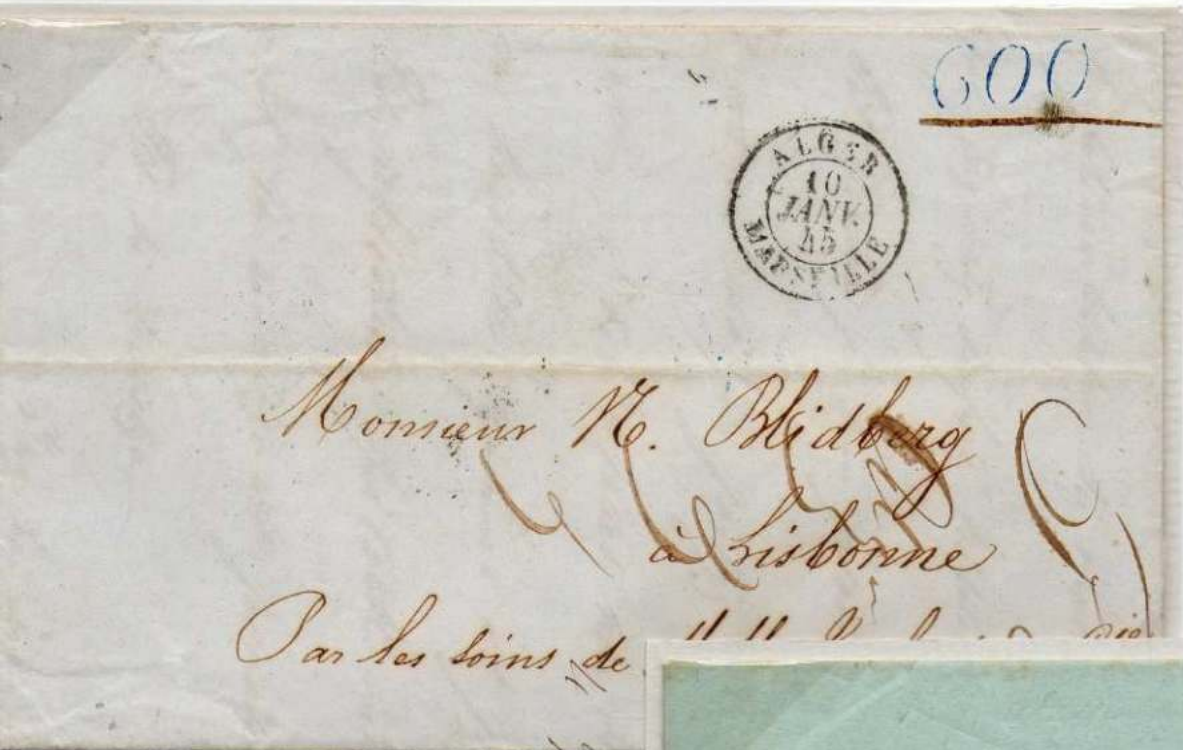 600
ALGER
10
JANV.
45
MARSEILLE
Monsieur N. Blidberg
à Lisbonne
Par les soins de